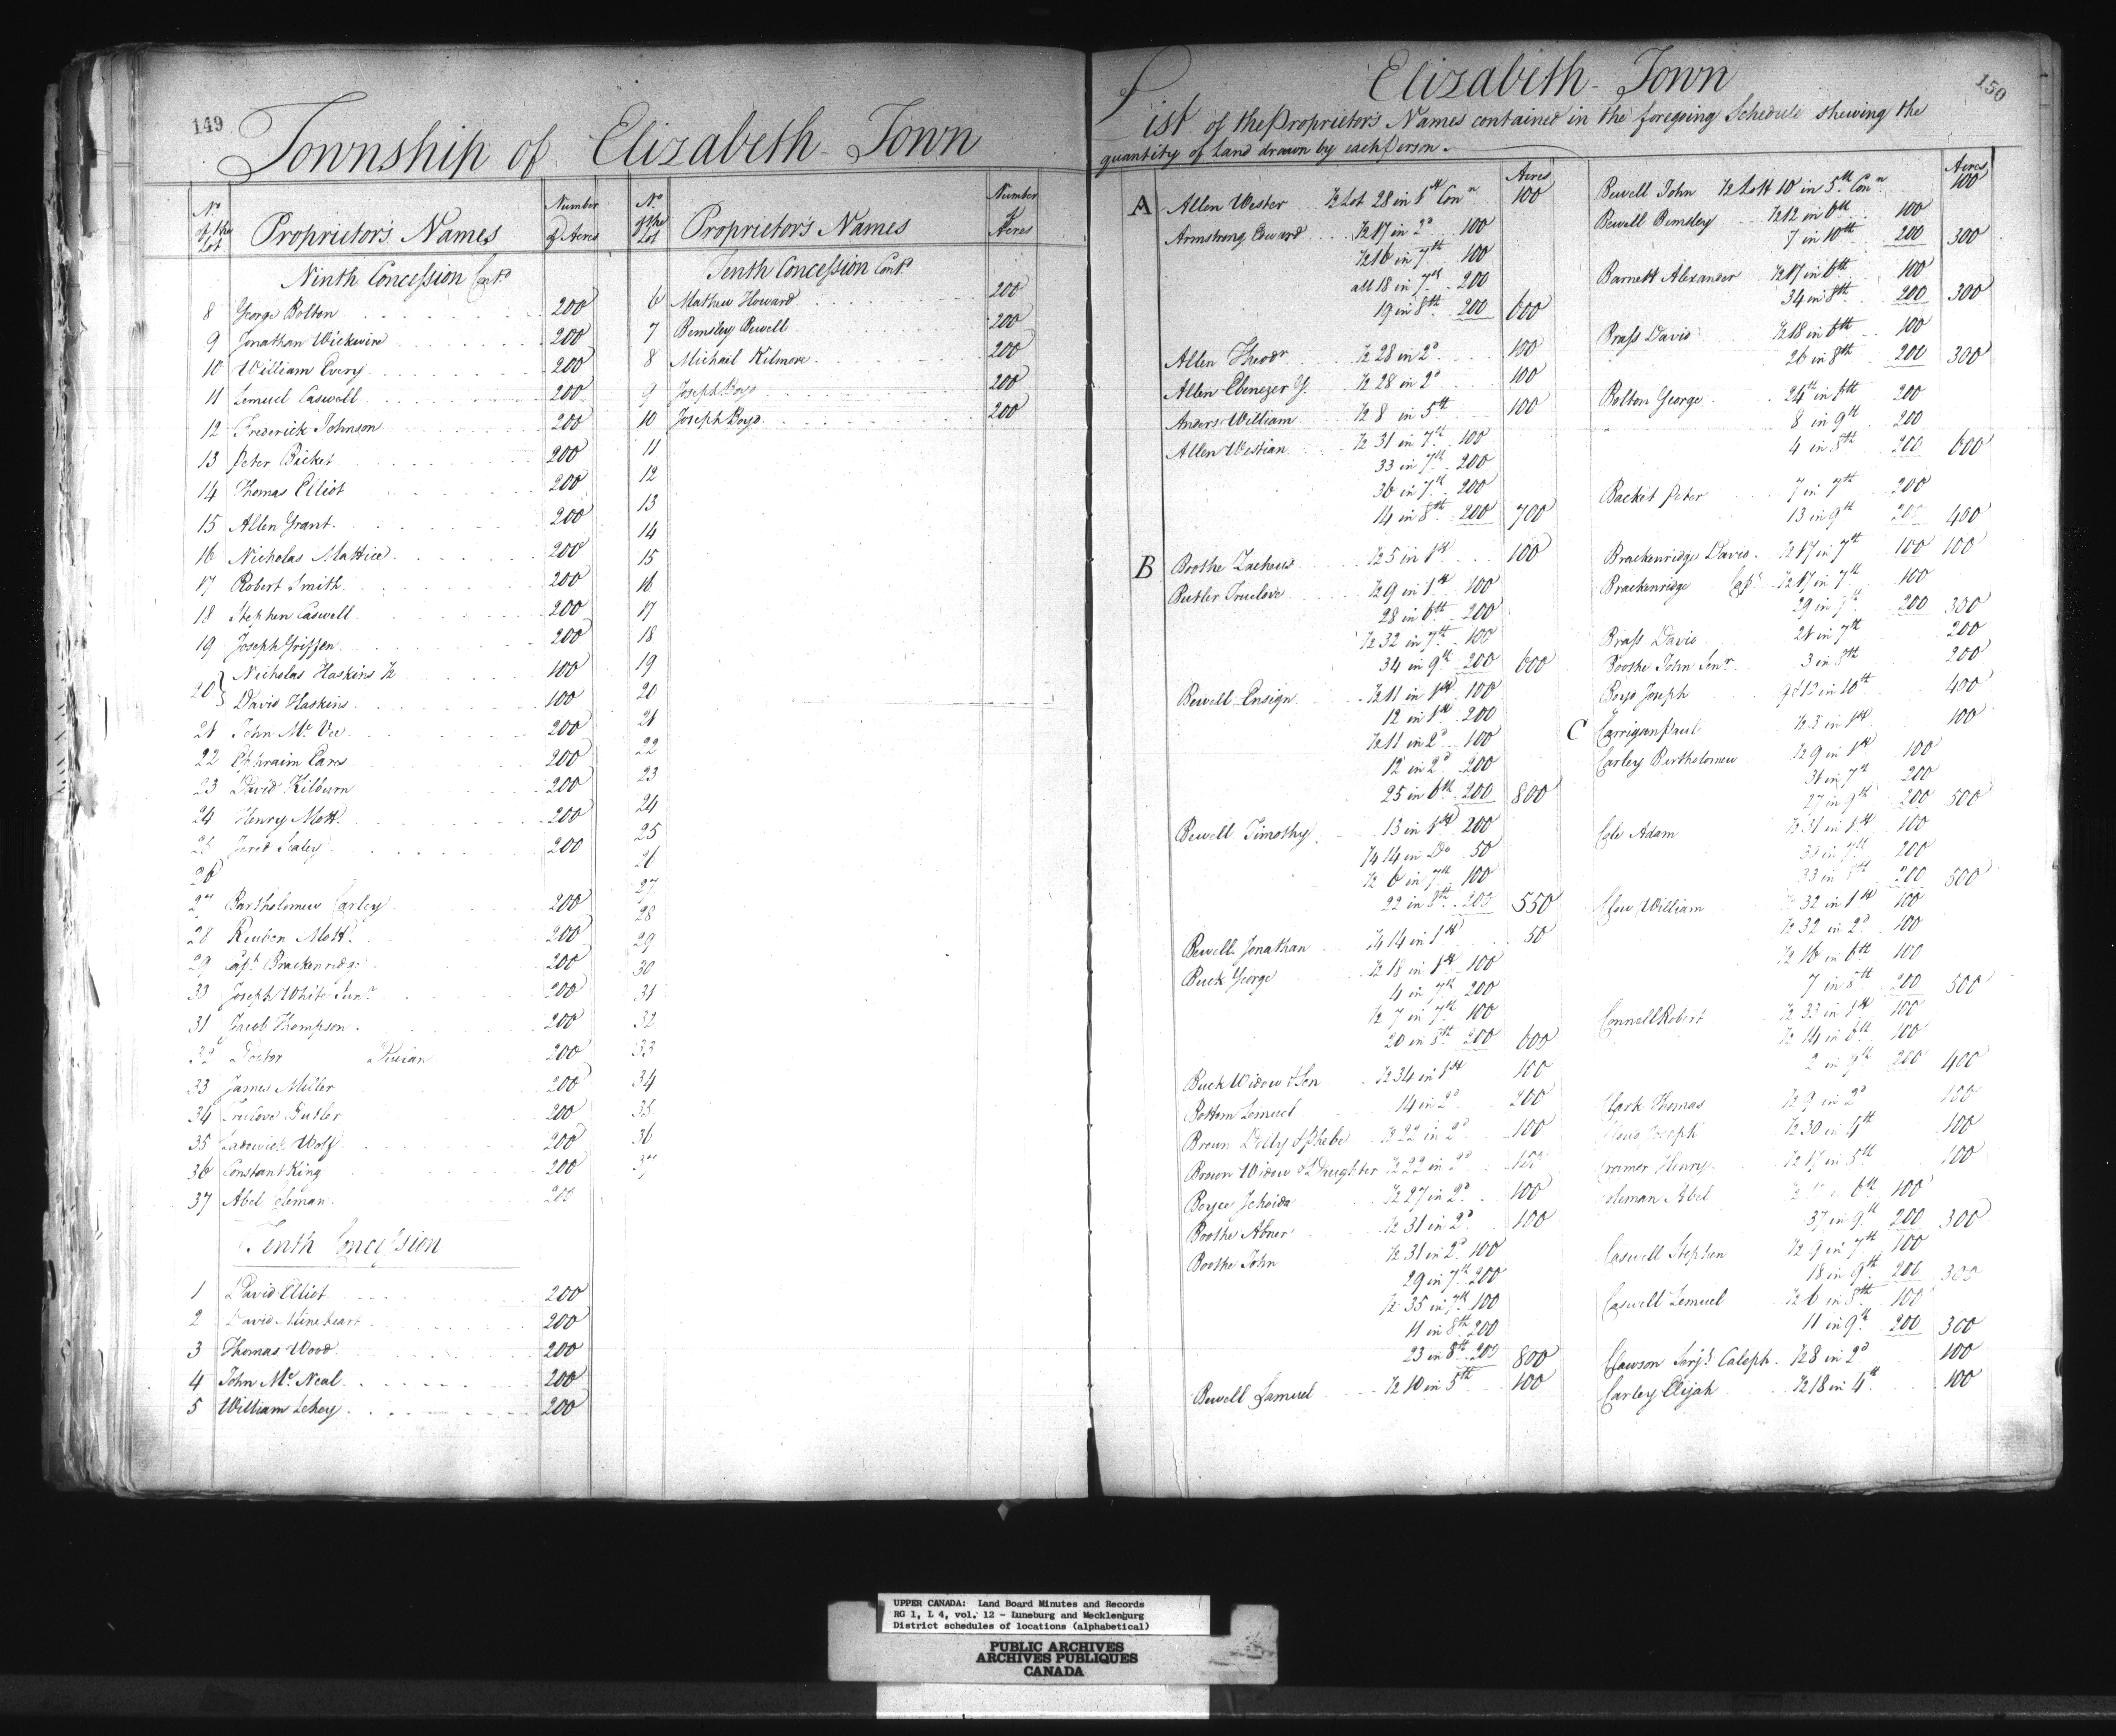 149
Township of Elizabeth-Town
No of the Lot Proprietor's Names Number of Acres
Ninth Concession Contd
8 George Bolton 200
9 Jonathan Wickwire 200
10 William Every 200
11 Lemuel Caswell 200
12 Frederick Johnson 200
13 Peter Bicket 200
14 Thomas Elliot 200
15 Allen Grant 200
16 Nicholas Mattice 200
17 Robert Smith 200
18 Stephen Caswell 200
19 Joseph Griffen 200
20 Nicholas Haskins ½ 100
David Haskins 100
21 John Mc Vee 200
22 Ephraim Cars 200
23 David Kilburn 200
24 Henry Mott 200
25 Jered Sealey 200
26
27 Bartholomew Carley 200
28 Reuben Mott 200
29 Capt Brackenridge 200
30 Joseph White Junr 200
31 Jacob Thompson 200
32 Doctor 200
33 James Miller 200
34 Truelove Butler 200
35 Ladowick Wolf 200
36 Constant King 200
37 Abel Coleman 200
Tenth Concession
1 David Elliot 200
2 David Mineheart 200
3 Thomas Wood 200
4 John Mc Neal 200
5 William Lehey 200
No of the Lot Proprietor's Names Number of Acres
Tenth Concession Contd
6 Mathew Howard 200
7 Bemsley Bewell 200
8 Michail Kilmore 200
9 Joseph Boyd 200
10 Joseph Boyd 200
11
12
13
14
15
16
17
18
19
20
21
22
23
24
25
26
27
28
29
30
31
32
33
34
35
36
37
150
Elizabeth-Town
List of the Proprietor's Names contained in the foregoing Schedule shewing the
quantity of Land drawn by each Person.
Acres
A Allen Wester ½ Lot 28 in 1st Conn 100
Armstrong Edward ½ 17 in 2d 100
½ 16 in 7th 100
all 18 in 7th 200
19 in 8th 200 600
Allen Theodr ½ 28 in 2d 100
Allen Ebenezer Y. ½ 28 in 2d 100
Anders William ½ 8 in 5th 100
Allen Westian ½ 31 in 7th 100
33 in 7th 200
36 in 7th 200
14 in 8th 200 700
B Boothe Zacheus ½ 5 in 1st 100
Butler Truelove ½ 9 in 1st 100
28 in 6th 200
½ 32 in 7th 100
34 in 9th 200 600
Bewell Ensign ½ 11 in 1st 100
12 in 1st 200
½ 11 in 2d 100
12 in 2d 200
25 in 6th 200 800
Bewell Timothy 13 in 1st 200
¼ 14 in Do 50
½ 6 in 7th 100
22 in 8th 200 550
Bewell Jonathan ¼ 14 in 1st 50
Buck George ½ 18 in 1st 100
4 in 7th 200
½ 7 in 7th 100
20 in 8th 200 600
Buck Widow & Son ½ 34 in 1st 100
Bottom Lemuel 14 in 2d 200
Brown Dilly & Phebe ½ 22 in 2d 100
Brown Widow & Daughter ½ 22 in 2d 100
Boyce ½ 27 in 2d 100
Boothe Abner ½ 31 in 2d 100
Boothe John ½ 31 in 2d 100
29 in 7th 200
½ 35 in 7th 100
11 in 8th 200
23 in 8th 200 800
Bewell Samuel ½ 10 in 5th 100
Acres
Bewell John ½ Lott 10 in 5th Conn 100
Bewell Bemsley ½ 12 in 6th 100
7 in 10th 200 300
Barnett Alexander ½ 17 in 6th 100
34 in 8th 200 300
Brass David ½ 18 in 6th 100
26 in 8th 200 300
Bolton George 24th in 6th 200
8 in 9th 200
4 in 8th 200 600
Backet Peter 7 in 7th 200
13 in 9th 200 400
Brackenridge David ½ 17 in 7th 100 100
Brackenridge Capt ½ 17 in 7th 100
29 in 9th 200 300
Brass David 21 in 7th 200
Boothe John Senr 3 in 8th 200
Boyd Joseph 9 & 10 in 10th 400
C Carrigan Paul ½ 3 in 1st 100
Carley Bartholomew ½ 9 in 1st 100
31 in 7th 200
27 in 9th 200 500
Cole Adam ½ 31 in 1st 100
30 in 7th 200
33 in 8th 200 500
Clow William ½ 32 in 1st 100
½ 32 in 2d 100
½ 16 in 6th 100
7 in 8th 200 500
Connell Robert ½ 33 in 1st 100
½ 14 in 6th 100
2 in 9th 200 400
Clark Thomas ½ 9 in 2d 100
Joseph ½ 30 in 4th 100
Henry ½ 17 in 5th 100
Coleman Abel in 6th 100
37 in 9th 200 300
Caswell Stephen ½ 9 in 7th 100
18 in 9th 200 300
Caswell Lemuel ½ 6 in 8th 100
11 in 9th 200 300
Clawson Serjt Caleph ½ 8 in 2d 100
Carley Elijah ½ 18 in 4th 100
UPPER CANADA: Land Board Minutes and Records
RG 1, L 4, vol. 12 - Luneburg and Mecklenburg
District schedules of locations (alphabetical)
PUBLIC ARCHIVES
ARCHIVES PUBLIQUES
CANADA